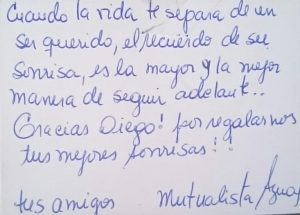 Cuando la vida te separa de un
ser querido, el recuerdo de su
sonrisa, es la mayor y la mejor
manera de seguir adelante..
Gracias Diego! por regalarnos
tus mejores sonrisas!!
tus amigos Mutualista